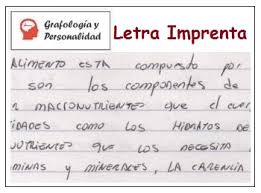 Grafología y
Personalidad
Letra Imprenta
ALIMENTO ESTA compuesto por
son los componentes de
n MACRONUTRIENTES que el cuer
IDADES como los HIDRATOS DE
NUTRIENTES que LOS NECESITA
MINAS y MINERALES, LA CARENCIA